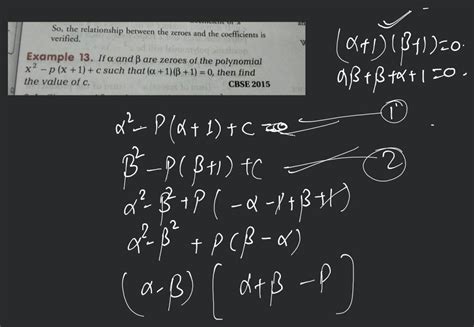 So, the relationship between the zeroes and the coefficients is
verified.
Example 13. If α and β are zeroes of the polynomial
x² – p (x + 1) + c such that (α + 1)(β + 1) = 0, then find
the value of c. CBSE 2015
(α+1)(β+1)=0.
αβ+β+α+1=0.
α² – P(α+1)+C = 0 ①
β² – P(β+1)+C ②
α² – β² + P(-α-1+β+1)
α² – β² + P(β-α)
(α-β) [α+β-P]